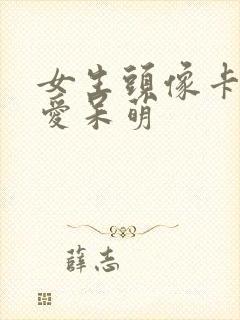 女生頭像卡
愛呆萌
薛志